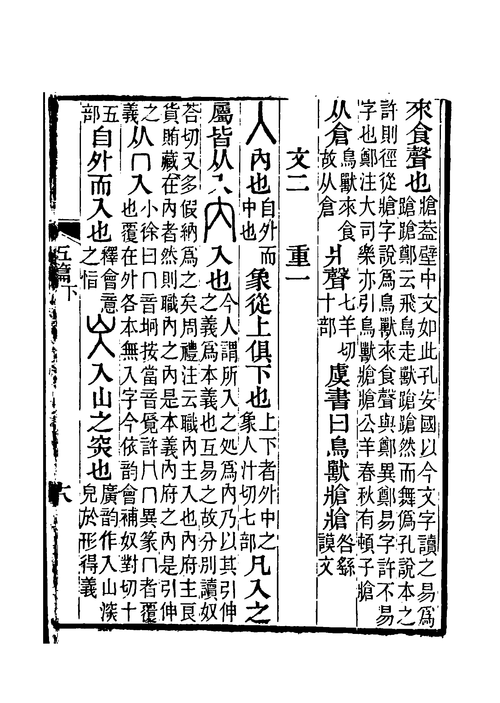 來食聲也牄葢壁中文如此孔安國以今文字讀之易爲
蹌蹌鄭云飛鳥走獸蹌蹌然而舞僞孔說本之
許則徑從牄字說爲鳥獸來食聲與鄭異鄭易字許不易
字也鄭注大司樂亦引鳥獸牄牄公羊春秋有頓子牄
从倉鳥獸來食故从倉爿聲七羊切十部虞書曰鳥獸牄牄咎繇謨文
文二 重一
入內也自外而中也象從上俱下也上下者外中之象人汁切七部凡入之
屬皆从入內入也今人謂所入之処爲內乃以其引伸
之義爲本義也互易之故分別讀奴
荅切又多假納爲之矣周禮注云職內主入也內府主良
貨賄藏在內者然則職內之內是本義內府之內是引伸
之義从冂入小徐曰冂音坰按當音覓許冂冖異篆冖者覆
也覆在外各本無入字今依韵會補奴對切十
五部自外而入也釋會意之恉屳入山之突也廣韵作入山㴱皃於形得義
五篇下
六